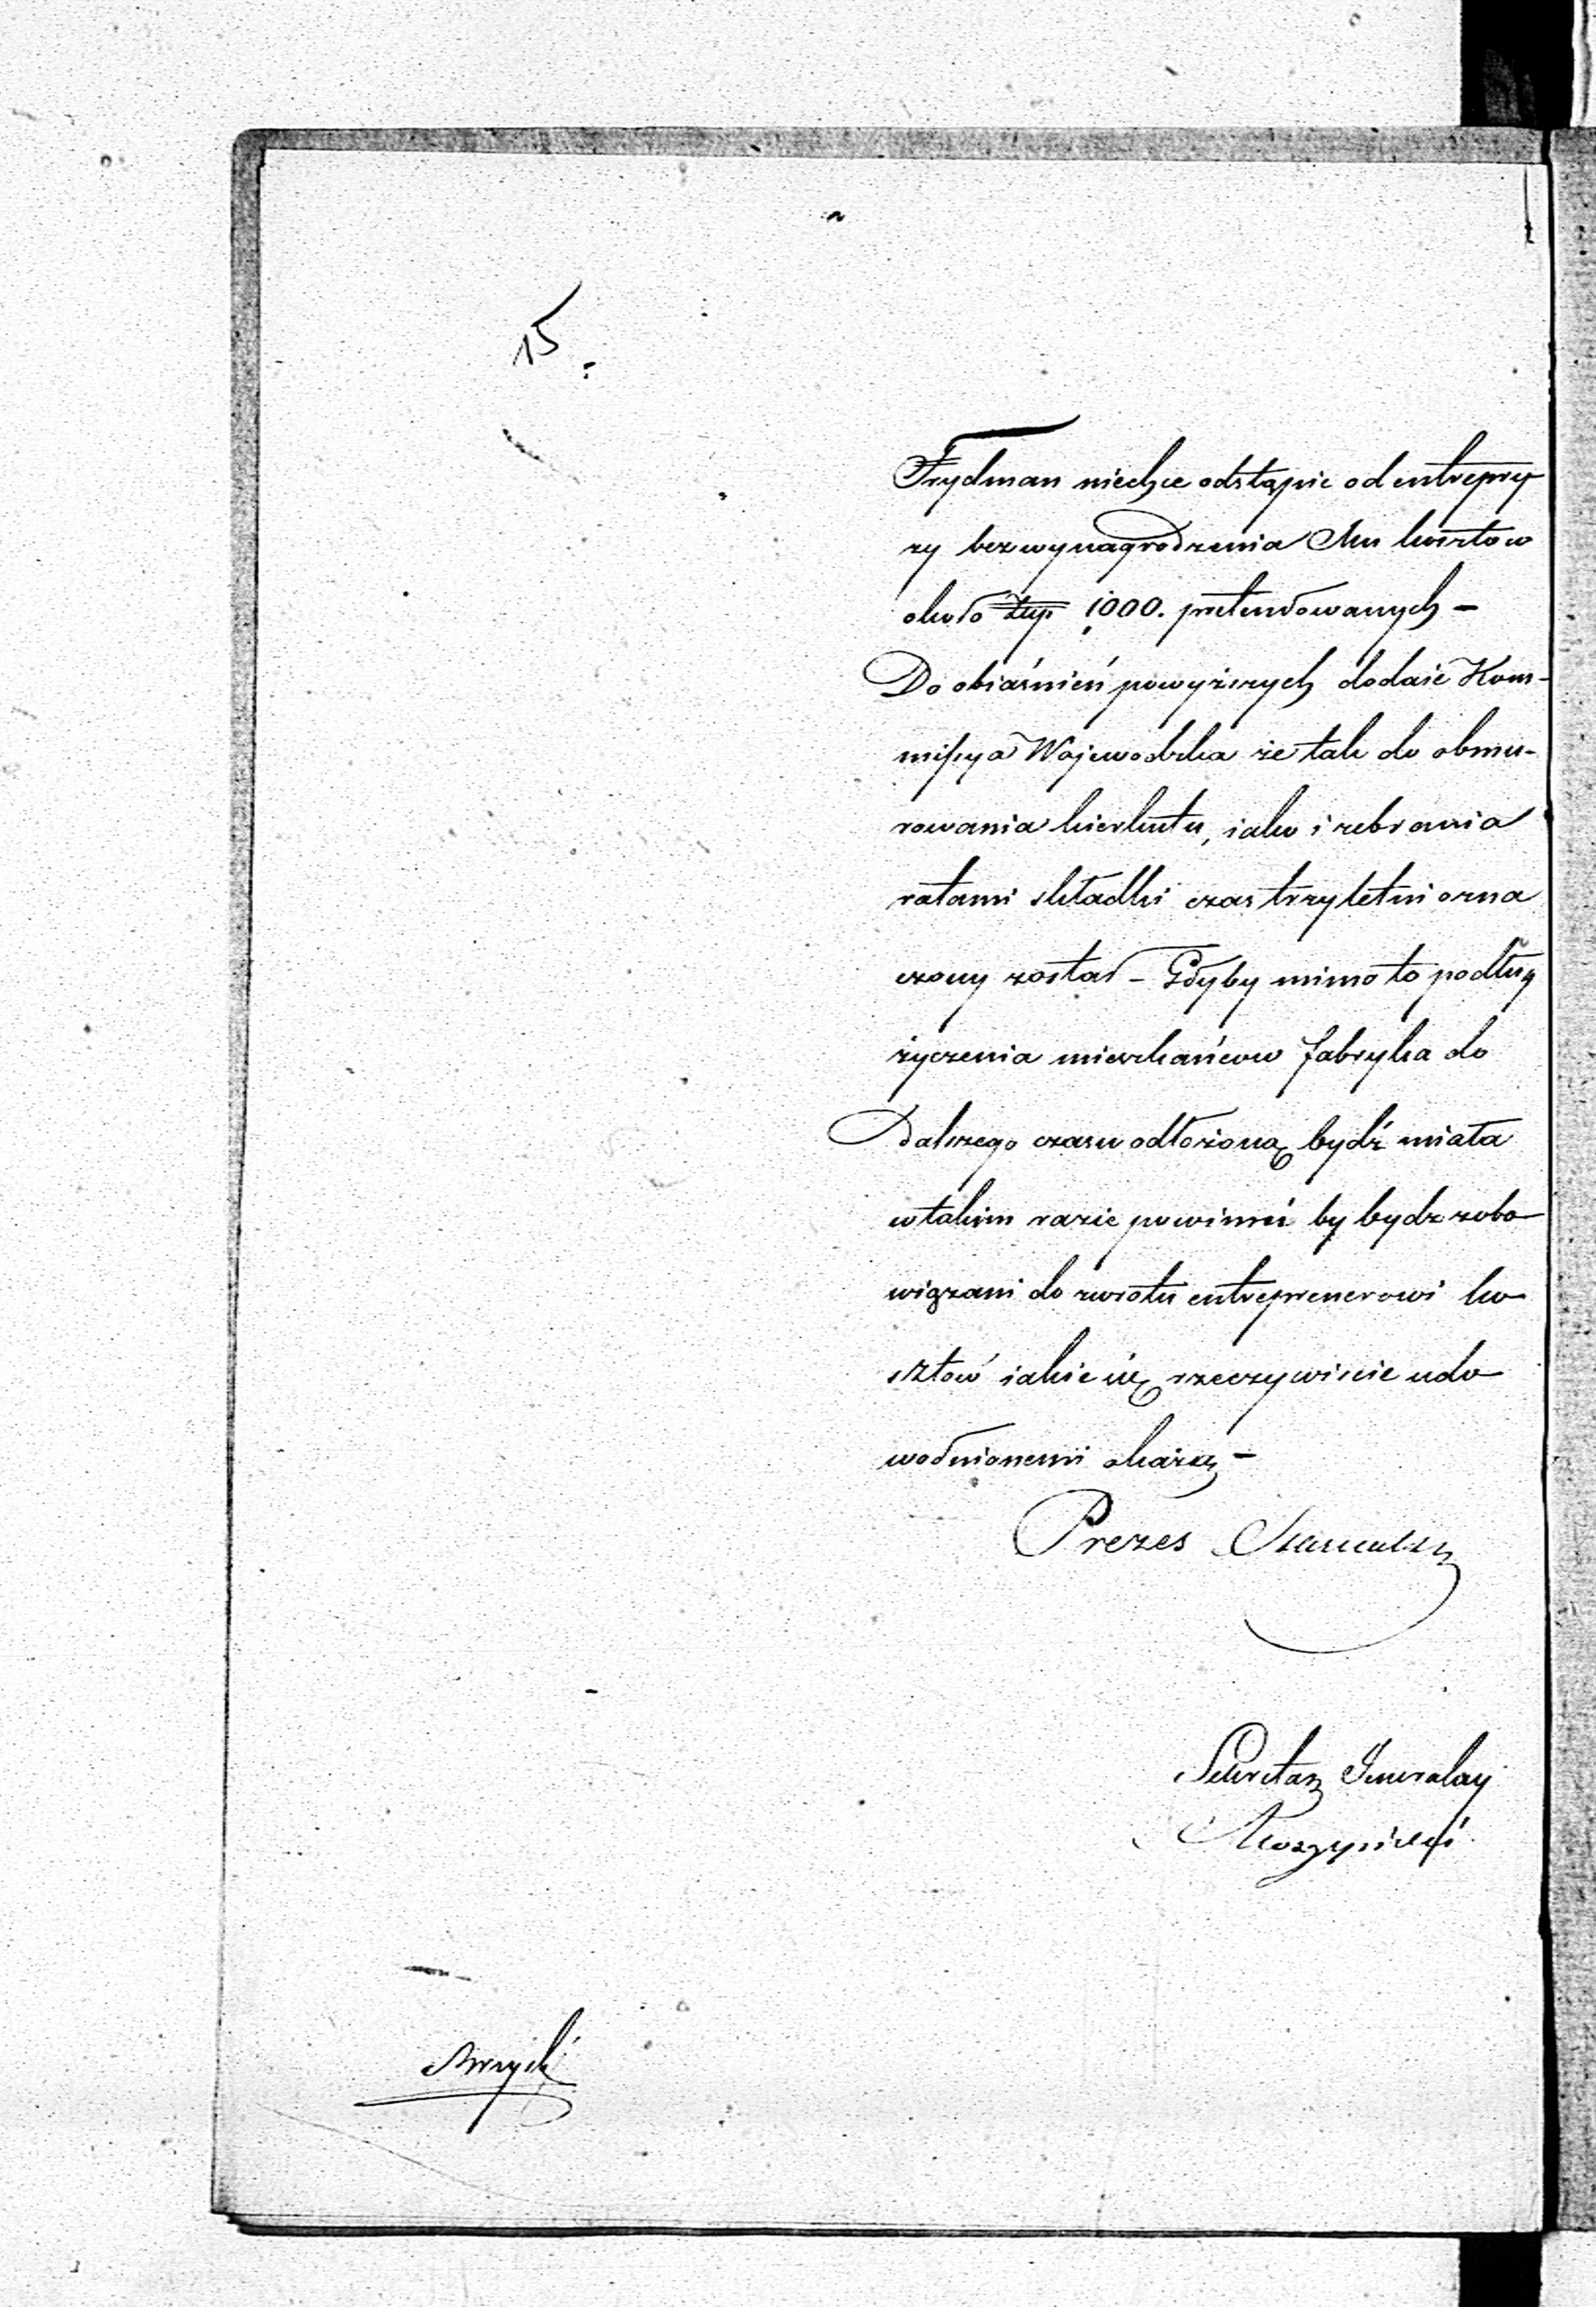 15.
Frydman niechce odstąpić od entrepry
zy bez wynagrodzenia Mu kosztow
około Złp 1000. pretendowanych –
Do obiaśnień powyższych dodaie Kom-
missya Wojewodzka że tak do obmu-
rowania kierkutu, iako i zebrania
ratami składki czas trzyletni ozna
czony został – Gdyby mimo to podług
życzenia mieszkańcow fabryka do
dalszego czasu odłożoną bydź miała
w takim razie powinni by bydz zobo
wiązani do zwrotu entreprenerowi ko
sztów iakie się rzeczywiscie udo
wodnionemi okażą –
Prezes
Sekretarz Generalny